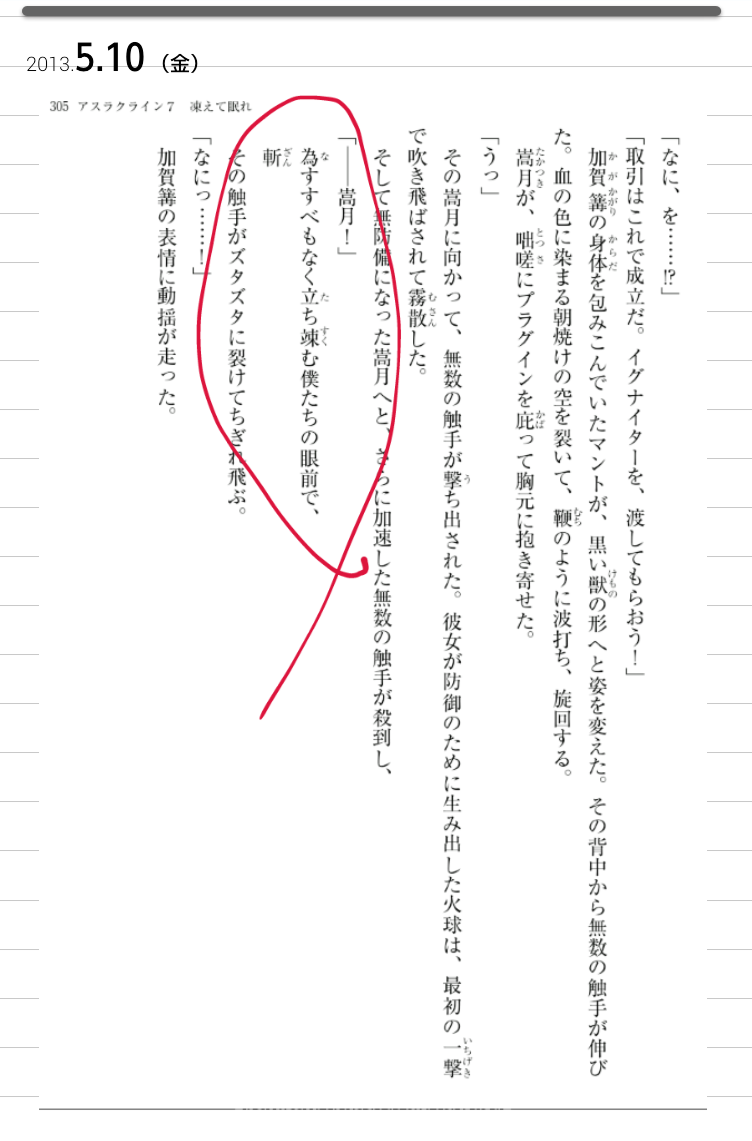 2013.5.10（金）
305 アスラクライン7 凍えて眠れ
「なに、を……!?」
「取引はこれで成立だ。イグナイターを、渡してもらおう！」
加賀篝の身体を包みこんでいたマントが、黒い獣の形へと姿を変えた。その背中から無数の触手が伸び
た。血の色に染まる朝焼けの空を裂いて、鞭のように波打ち、旋回する。
嵩月が、咄嗟にプラグインを庇って胸元に抱き寄せた。
「うっ」
その嵩月に向かって、無数の触手が撃ち出された。彼女が防御のために生み出した火球は、最初の一撃
で吹き飛ばされて霧散した。
そして無防備になった嵩月へと、さらに加速した無数の触手が殺到し、
「――嵩月！」
為すすべもなく立ち竦む僕たちの眼前で、
斬
その触手がズタズタに裂けてちぎれ飛ぶ。
「なにっ……！」
加賀篝の表情に動揺が走った。